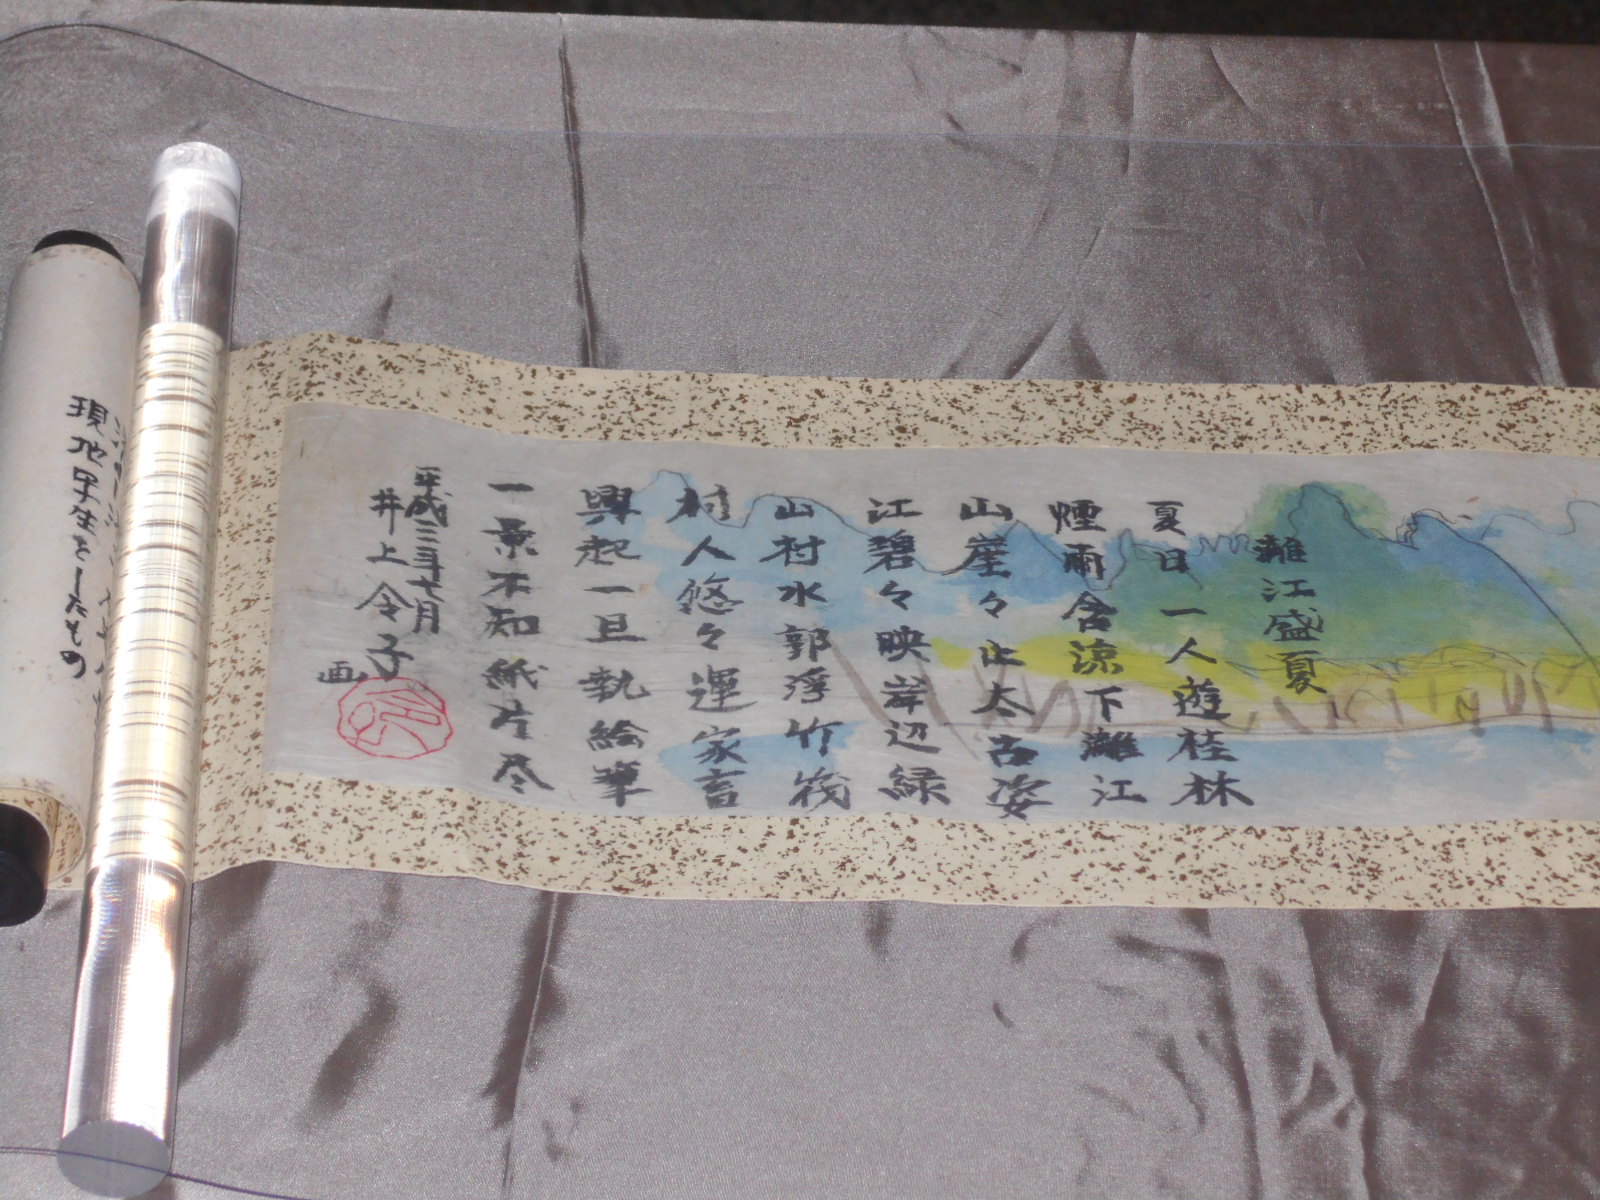 灘江盛夏
夏日一人遊桂林
煙雨含涼下灘江
山崖々止太古姿
江碧々映岸辺緑
山村水郭浮竹筏
村人悠々運家畜
興起一旦執絵筆
一景不知紙片尽
平成三年七月
井上令子
画
現地写生をしたもの